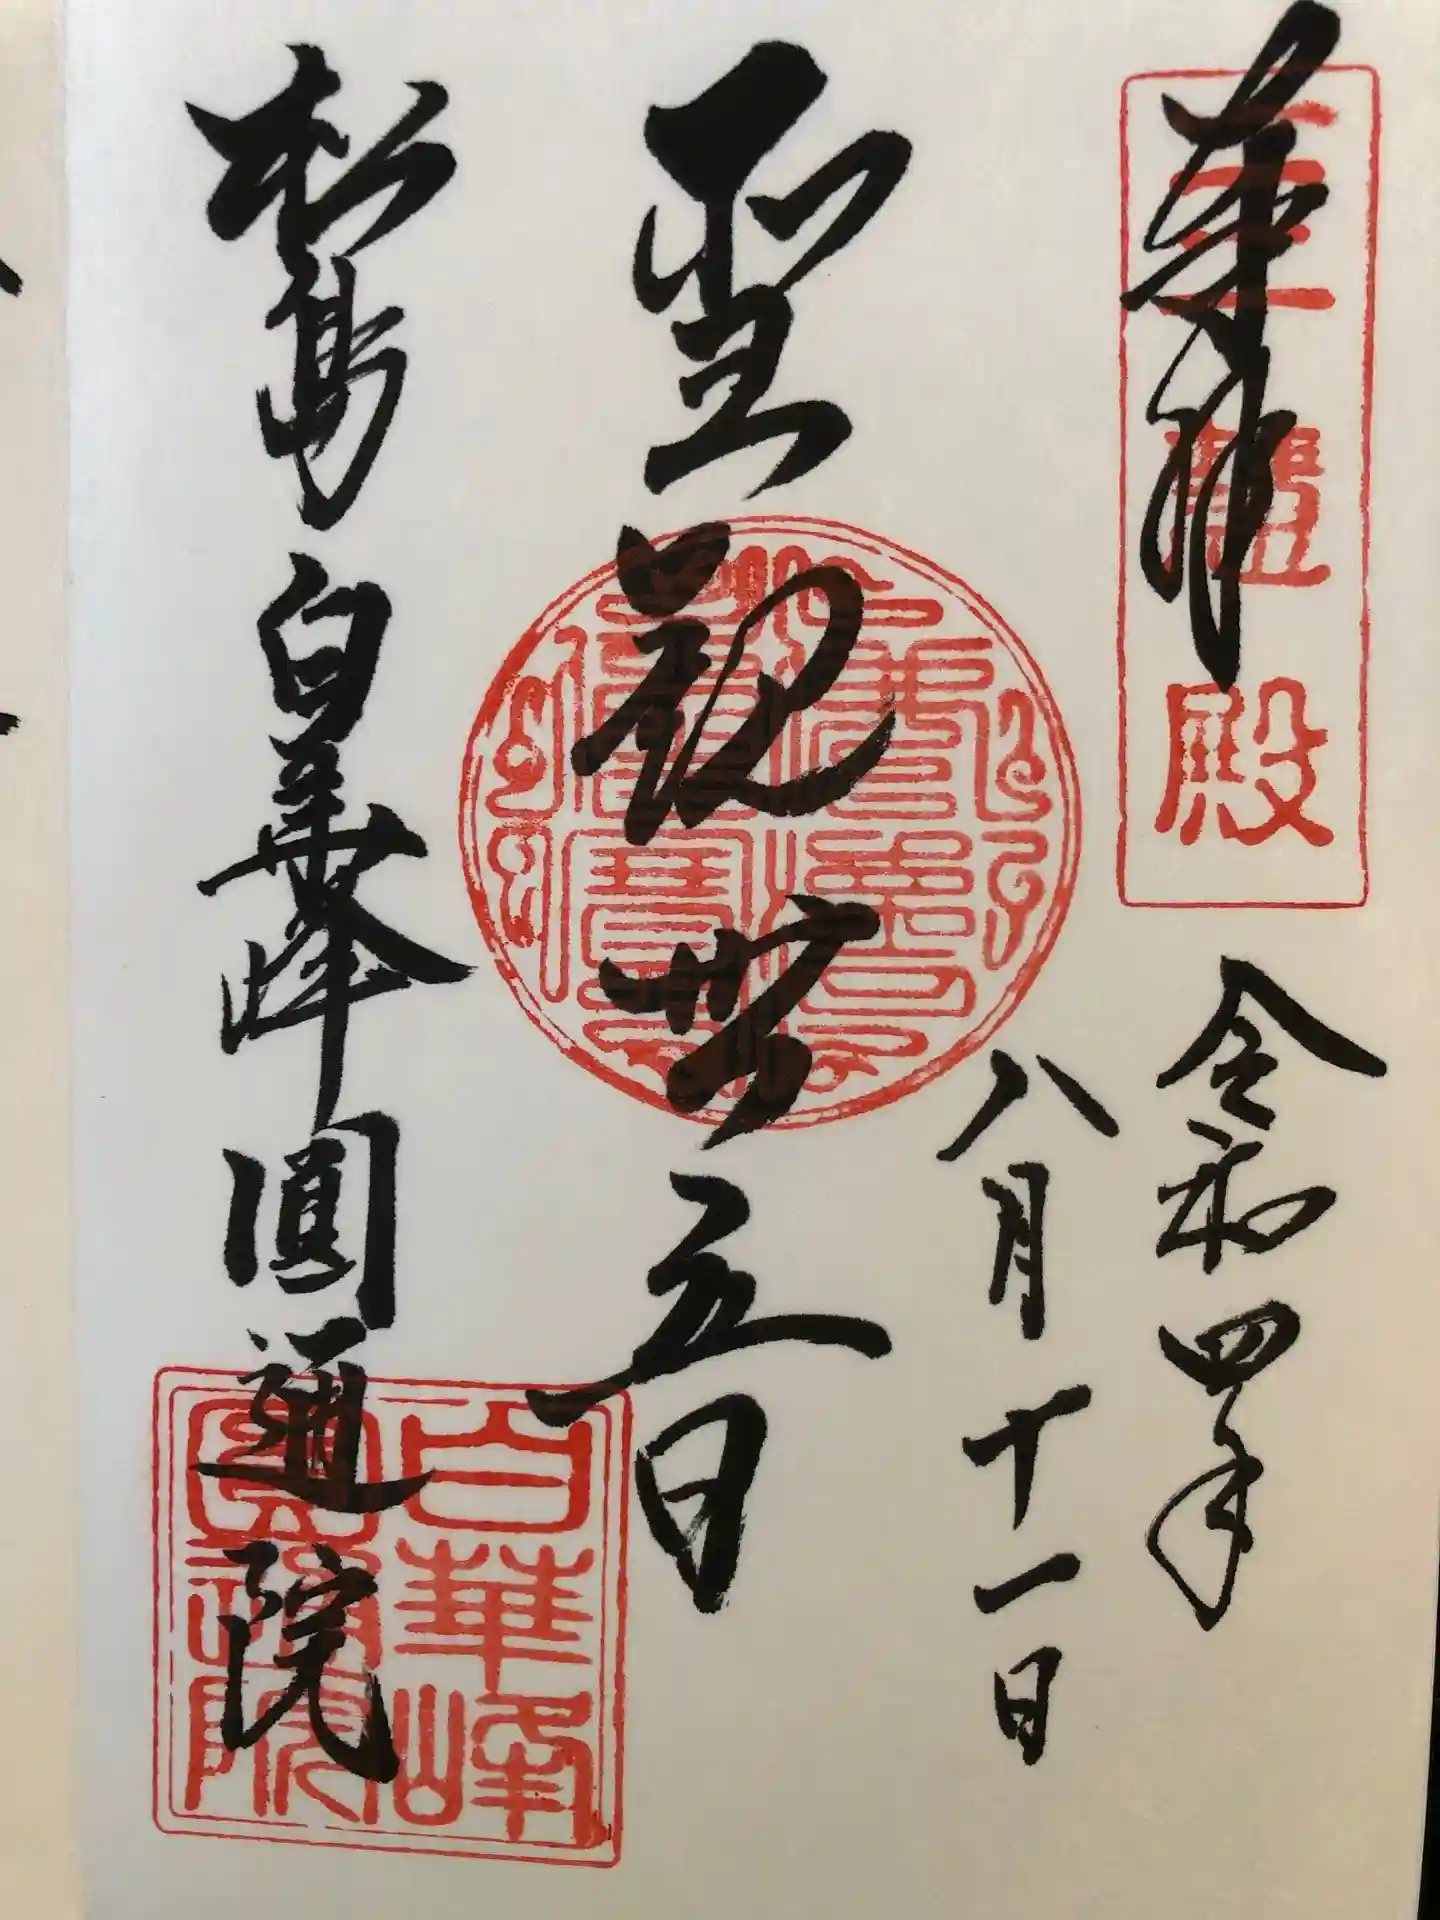 奉拝
三慧殿
令和四年
八月十一日
聖観世音
松島 白華峰 圓通院
白華峰
圓通院